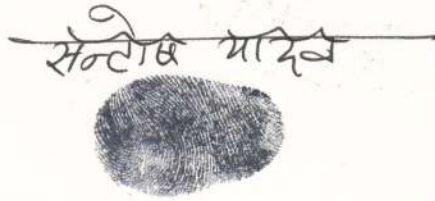 सन्टोष यादव